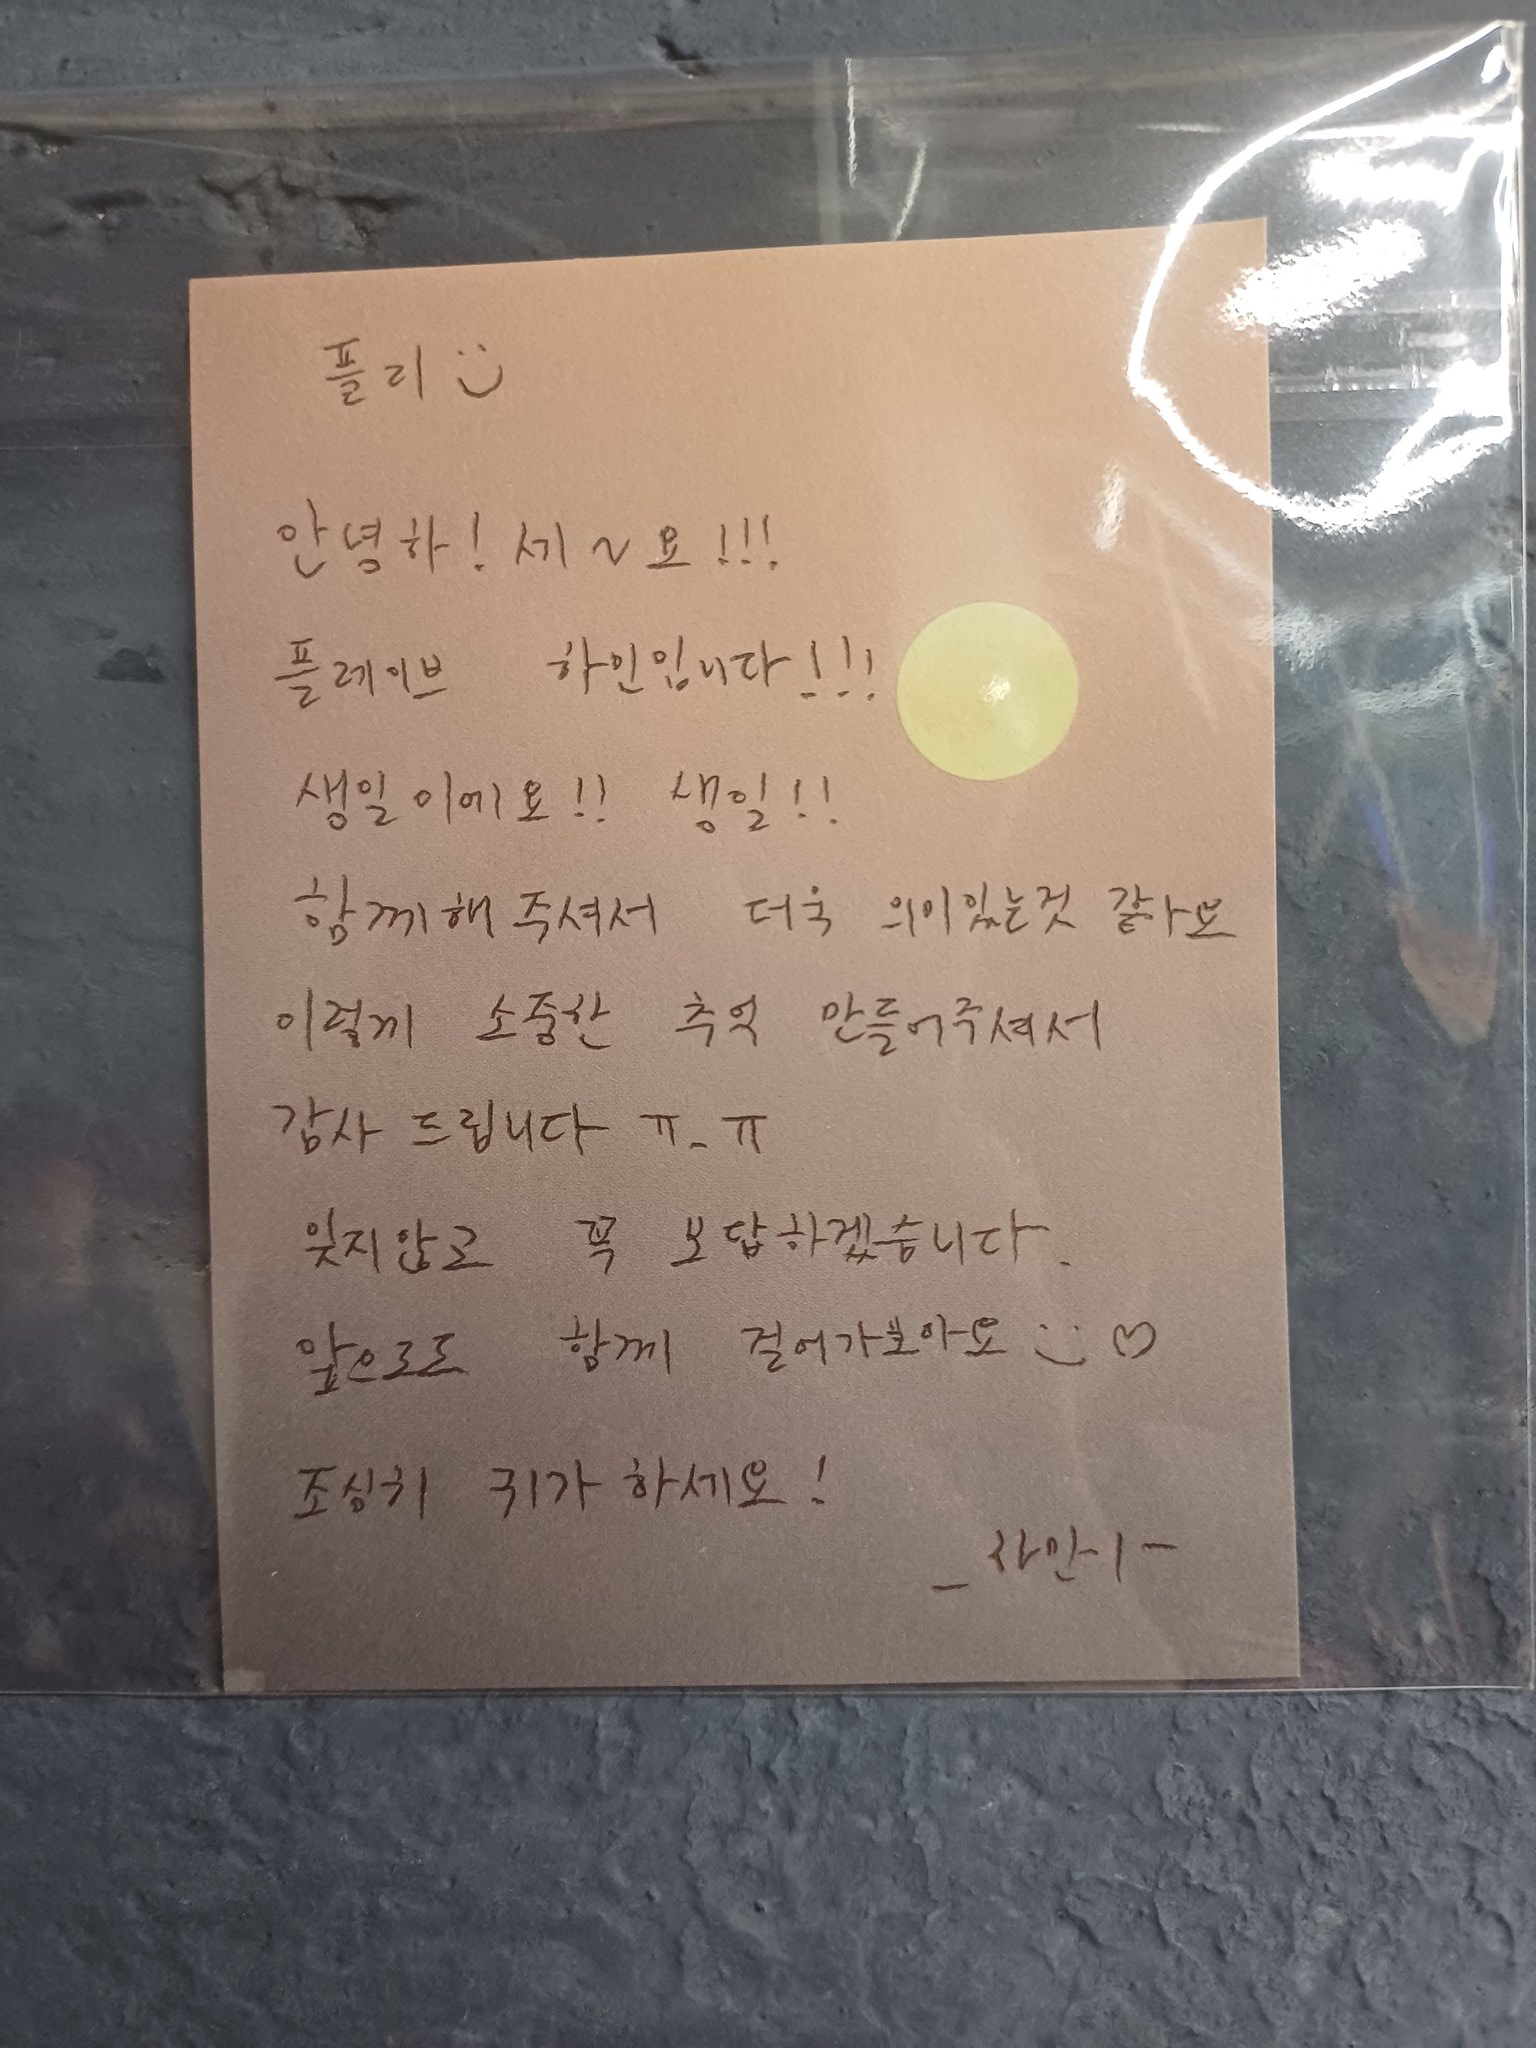 플리 :)
안녕하! 세~요!!!
플레이브 하민입니다!!!
생일이에요!! 생일!!
함께해주셔서 더욱 의미있는것 같아요
이렇게 소중한 추억 만들어주셔서
감사 드립니다 ㅠ_ㅠ
잊지않고 꼭 보답하겠습니다.
앞으로도 함께 걸어가보아요 :) ♡
조심히 귀가 하세요!